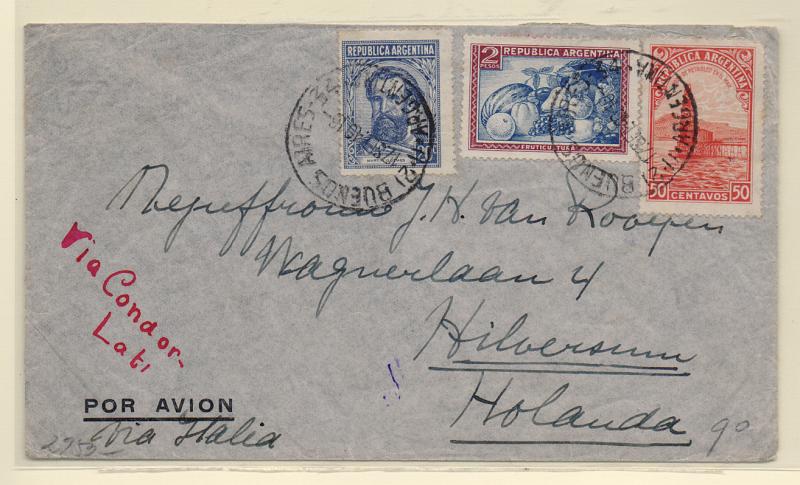 REPUBLICA ARGENTINA
2
PESOS
REPUBLICA ARGENTINA
FRUTICULTURA
REPUBLICA ARGENTINA
50 CENTAVOS 50
BUENOS AIRES
J. H. van Kooijen
Wagnerlaan 4
Hilversum
Holanda
90
Via Condor-
Lati
POR AVION
Via Italia
2753